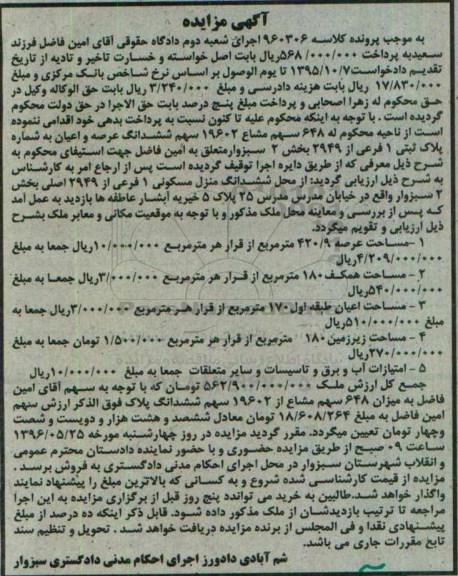 آگهی مزایده
به موجب پرونده کلاسه ۹۶۰۳۰۶ اجرای شعبه دوم دادگاه حقوقی آقای امین فاضل فرزند
سعیدبه پرداخت ۵۶۸/۰۰۰/۰۰۰ریال بابت اصل خواسته و خسارت تاخیر و تادیه از تاریخ
تقدیم دادخواست۱۳۹۵/۱۰/۷ تا یوم الوصول بر اساس نرخ شاخص بانک مرکزی و مبلغ
۱۷/۸۳۰/۰۰۰ ریال بابت هزینه دادرسی و مبلغ ۳/۲۴۰/۰۰۰ ریال بابت حق الوکاله وکیل در
حق محکوم له زهرا اصحابی و پرداخت مبلغ پنج درصد بابت حق الاجرا در حق دولت محکوم
گردیده است . با توجه به اینکه محکوم علیه تا کنون نسبت به پرداخت بدهی خود اقدامی ننموده
است از ناحیه محکوم له ۶۴۸ سهم مشاع ۱۹۶۰۲ سهم ششدانگ عرصه و اعیان به شماره
پلاک ثبتی ۱ فرعی از ۲۹۴۹ بخش ۲ سبزوارمتعلق به امین فاضل جهت استیفای محکوم به
شرح ذیل معرفی که از طریق دایره اجرا توقیف گردیده است پس از ارجاع امر به کارشناس
به شرح ذیل ارزیابی گردید: از محل ششدانگ منزل مسکونی ۱ فرعی از ۲۹۴۹ اصلی بخش
۲ سبزوار واقع در خیابان مدرس مدرس ۲۵ پلاک ۵ خیریه آبشار عاطفه ها بازدید به عمل آمد
که پس از بررسی و معاینه محل ملک مذکور و با توجه به موقعیت مکانی و معابر ملک بشرح
ذیل ارزیابی و تقویم میگردد.
۱ -مساحت عرصه ۴۲۰/۹ مترمربع از قرار هر مترمربع ۱۰/۰۰۰/۰۰۰ریال جمعا به مبلغ
۴/۲۰۹/۰۰۰/۰۰۰ریال
۲ - مساحت همکف۱۸۰ مترمربع از قرار هر مترمربع ۳/۰۰۰/۰۰۰ریال جمعا به مبلغ
۵۴۰/۰۰۰/۰۰۰ریال
۳ - مساحت اعیان طبقه اول۱۷۰ مترمربع از قرار هر مترمربع ۳/۰۰۰/۰۰۰ریال جمعا به
مبلغ ۵۱۰/۰۰۰/۰۰۰ریال
۴ - مساحت زیرزمین۱۸۰ مترمربع از قرار هر مترمربع ۱/۵۰۰/۰۰۰ تومان جمعا به مبلغ
۲۷۰/۰۰۰/۰۰۰ریال
۵ - امتیازات آب و برق و تاسیسات و سایر متعلقات جمعا به مبلغ ۱۰۰/۰۰۰/۰۰۰ریال
جمع کل ارزش ملک ۵۶۲/۹۰۰/۰۰۰/۰۰۰ تومان که با توجه به سهم آقای امین
فاضل به میزان ۶۴۸ سهم مشاع از ۱۹۶۰۲ سهم ششدانگ پلاک فوق الذکر ارزش سهم
امین فاضل به مبلغ ۱۸/۶۰۸/۲۶۴ تومان معادل ششصد و هشت هزار و دویست و شصت
وچهار تومان تعیین میگردد. مقرر گردید مزایده در روز چهارشنبه مورخه ۱۳۹۶/۰۵/۲۵
ساعت ۰۹ صبح از طریق مزایده حضوری و با حضور نماینده دادستان محترم عمومی
و انقلاب شهرستان سبزوار در محل اجرای احکام مدنی دادگستری به فروش برسد .
مزایده از قیمت کارشناسی شده شروع و به کسانی که بالاترین مبلغ را پیشنهاد نمایند
واگذار خواهد شد.طالبین به خرید می توانند پنج روز قبل از برگزاری مزایده به این اجرا
مراجعه تا ترتیب بازدیدشان از ملک مذکور داده شود. قابل ذکر اینکه ده درصد از مبلغ
پیشنهادی نقدا و فی المجلس از برنده مزایده دریافت خواهد شد . تحویل و تنظیم سند
تابع مقررات جاری می باشد.
شم آبادی دادورز اجرای احکام مدنی دادگستری سبزوار